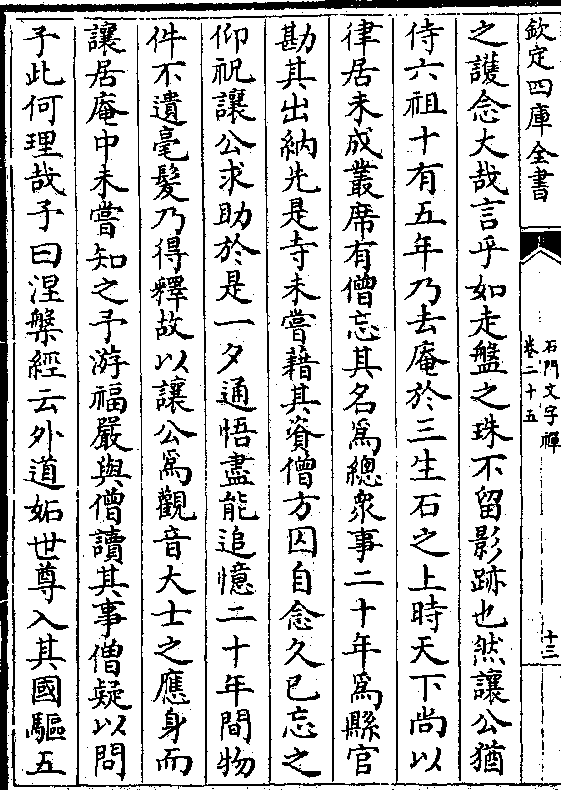 欽定四庫全書
石門文字禪
卷二十五
十三
之䕶念大哉言乎如走盤之珠不留影跡也然讓公猶
侍六祖十有五年乃去庵於三生石之上時天下尚以
律居未成叢席有僧忘其名爲總衆事二十年爲縣官
勘其出納先是寺未嘗藉其資僧方囚自念久已忘之
仰祝讓公求助於是一夕通悟盡能追憶二十年間物
件不遺毫髮乃得釋故以讓公爲觀音大士之應身而
讓居庵中未嘗知之予游福嚴與僧讀其事僧疑以問
予此何理哉予曰涅槃經云外道妬世尊入其國驅五